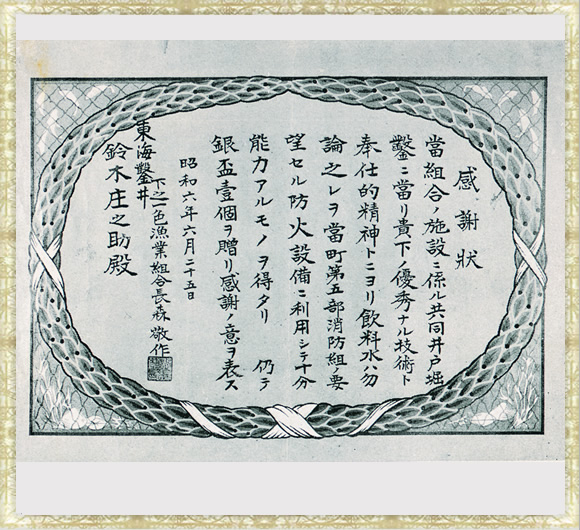 感謝狀
當組合ノ施設ニ係ル共同井戸堀
鑿ニ當リ貴下ノ優秀ナル技術ト
奉仕的精神トニヨリ飲料水ハ勿
論之レヲ當町第五部消防組ノ要
望セル防火設備ニ利用シテ十分
能力アルモノヲ得タリ 仍テ
銀盃壹個ヲ贈リ感謝ノ意ヲ表ス
昭和六年六月二十五日
下之一色漁業組合長森敬作
東海鑿井
鈴木庄之助殿